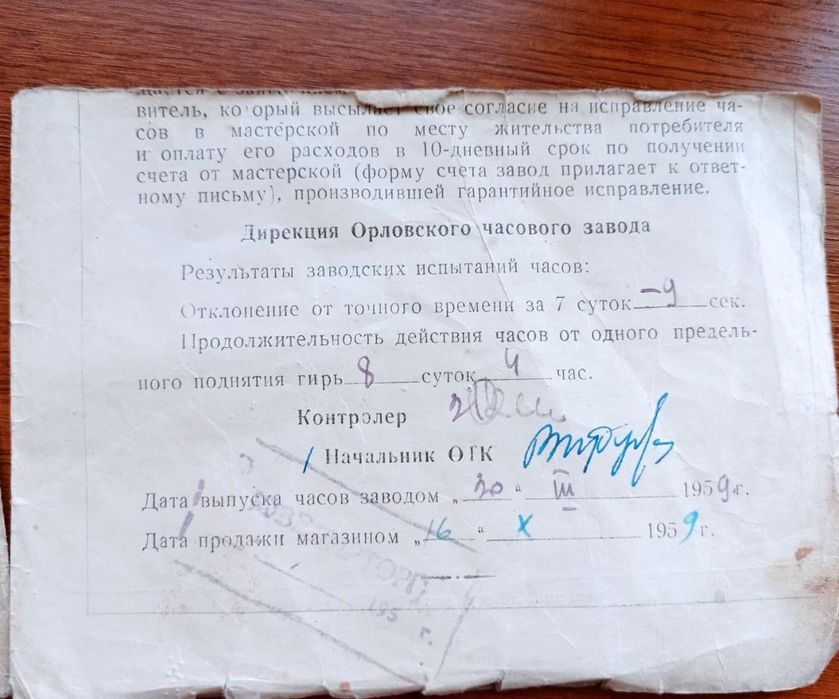 витель, который высылает свое согласие на исправление ча-
сов в мастерской по месту жительства потребителя
и оплату его расходов в 10-дневный срок по получении
счета от мастерской (форму счета завод прилагает к ответ-
ному письму), производившей гарантийное исправление.
Дирекция Орловского часового завода
Результаты заводских испытаний часов:
Отклонение от точного времени за 7 суток -9 сек.
Продолжительность действия часов от одного предель-
ного поднятия гирь 8 суток 4 час.
Контрэлер
Начальник ОТК
Дата выпуска часов заводом „30“ III 1959 г.
Дата продажи магазином „16“ X 1959 г.
195 г.